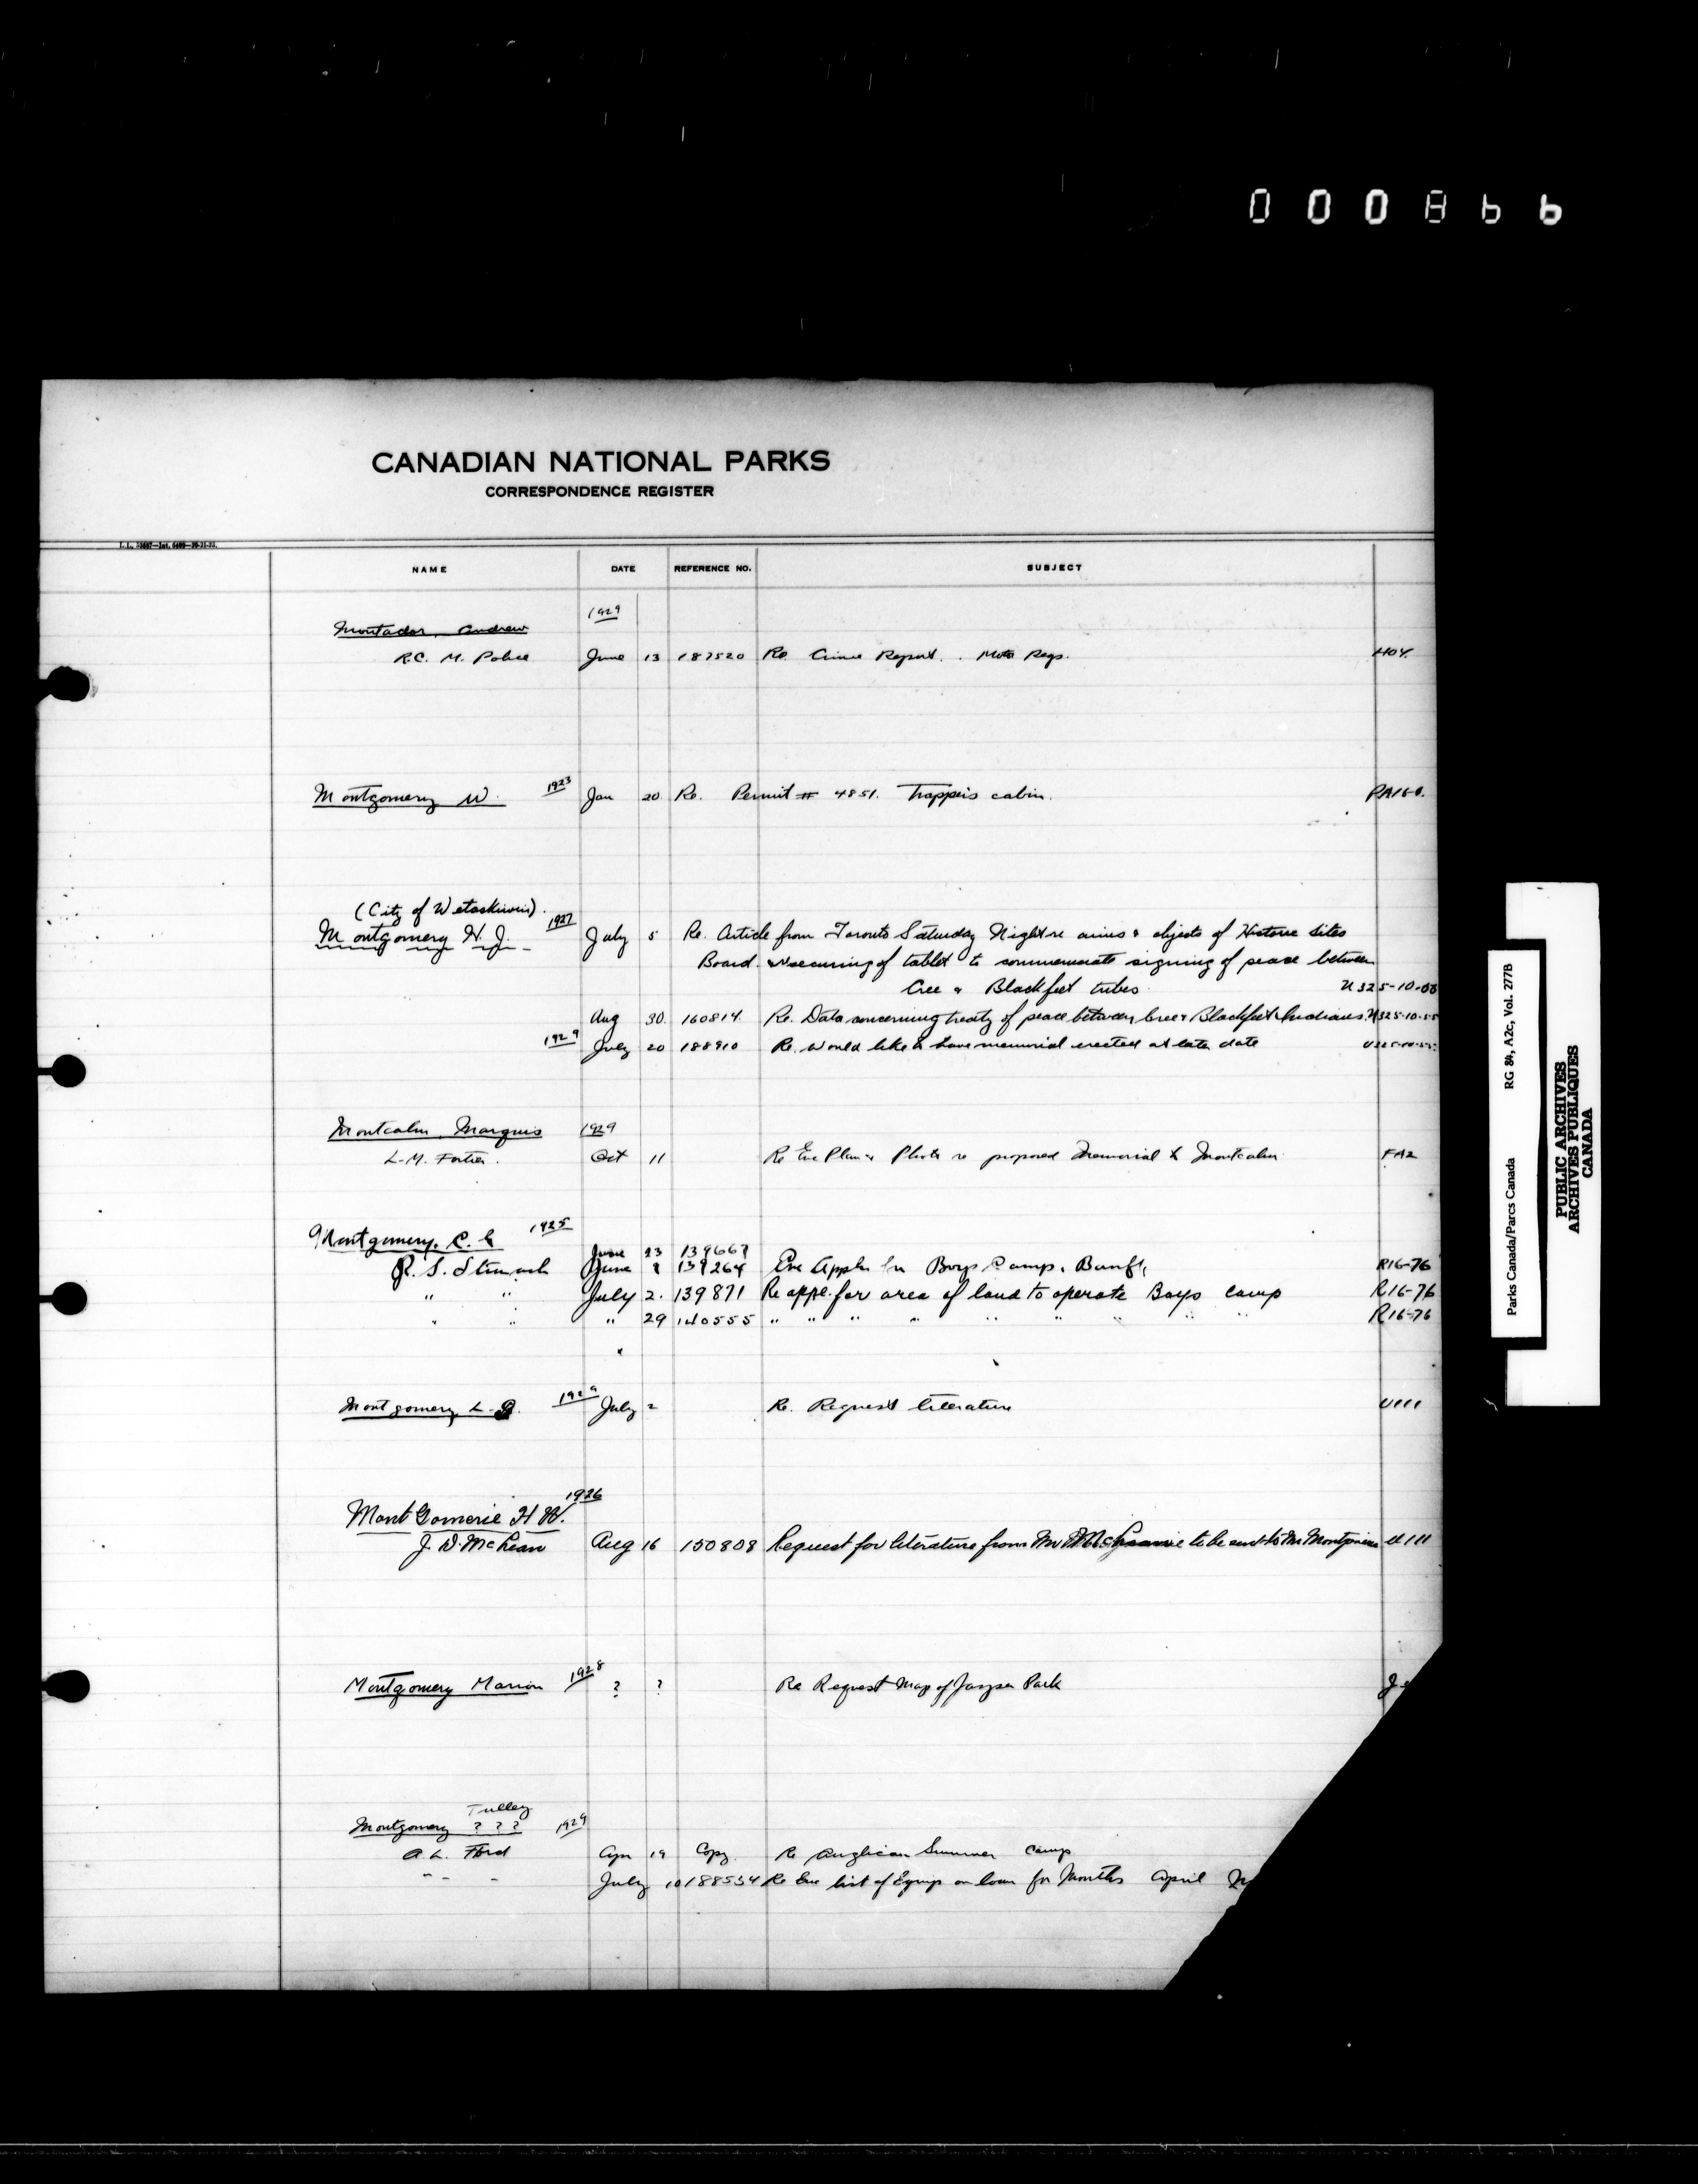 000866
CANADIAN NATIONAL PARKS
CORRESPONDENCE REGISTER
NAME DATE REFERENCE NO. SUBJECT
1929
Montador, Andrew
R.C. M. Police June 13 187520 Re. Crime Report. Moto Regs. H04.
Montgomery W. 1923 Jan 20 Re. Permit # 4851. Trapper's cabin.
(City of Wetaskiwin).
Montgomery H. J. 1927 July 5 Re. Article from Toronto Saturday Night re aims & objects of Historic Sites
Board. securing of tablet to commemorate signing of peace between
Cree & Blackfeet tribes. U325-10-55
Aug 30. 160814. Re. Data concerning treaty of peace between Cree & Blackfeet Indians. U325-10-55
1929 July 20 188910 Re. would like to have memorial erected at later date
Montcalm, Marquis 1929
L.M. Fortier. Oct 11 Re Enc Plan & Photo re proposed Memorial to Montcalm FA2
Montgomery, C. 1925
June 23 139667
R. S. June 8 139264 Enc Appln for Boys Camp, Banff, R16-76
" " July 2. 139871 Re appl. for area of land to operate Boys camp R16-76
" " " 29 140555 " " " " " " " " " R16-76
Montgomery L. 1929 July 2 Re. Request literature U111
1926
MontGomerie H W.
J. D. McLean Aug 16 150808 Request for literature from Mr to be sent to Mr U111
Montgomery Marion 1928 ? ? Re Request Map of Jasper Park
Tulley
Montgomery ? ? ? 1929
A. L. Ford Apr 19 Copy. Re Anglican Summer Camp
" " " July 10 188534 Re Enc list of Equip on loan for Months April
Parks Canada/Parcs Canada RG 84, A2c, Vol. 277B
PUBLIC ARCHIVES
ARCHIVES PUBLIQUES
CANADA